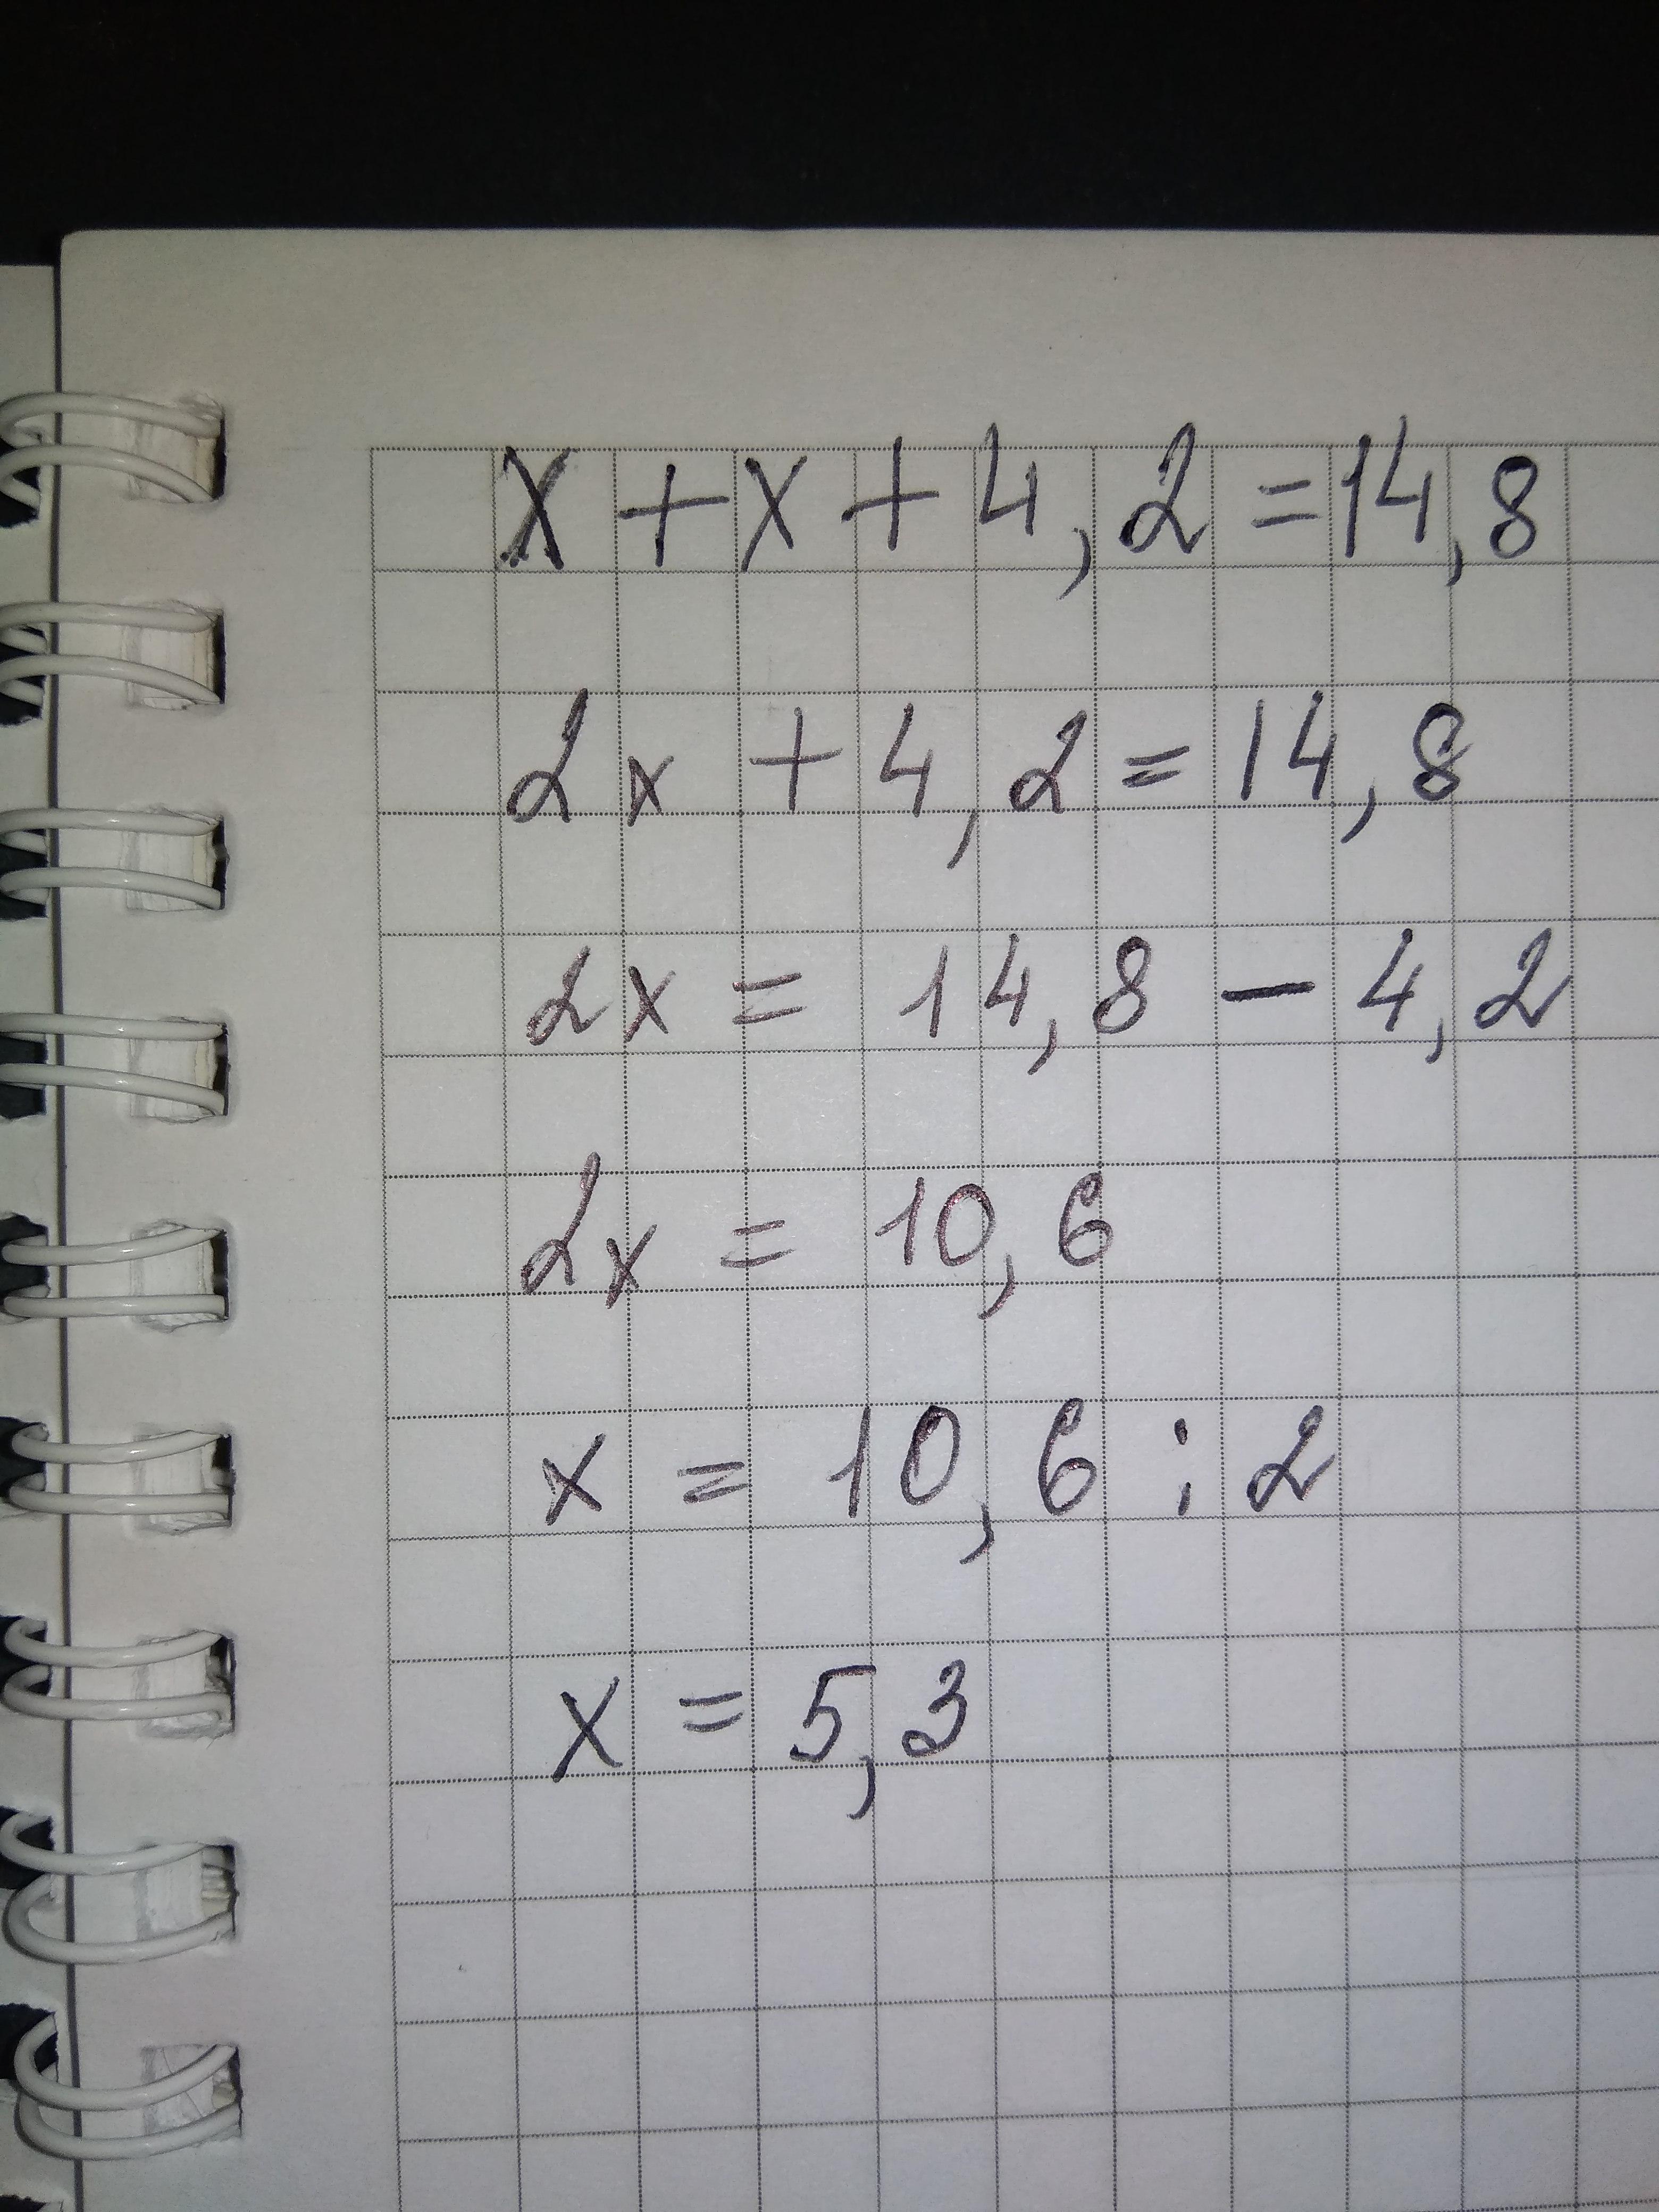 x + x + 4,2 = 14,8
2x + 4,2 = 14,8
2x = 14,8 - 4,2
2x = 10,6
x = 10,6 : 2
x = 5,3